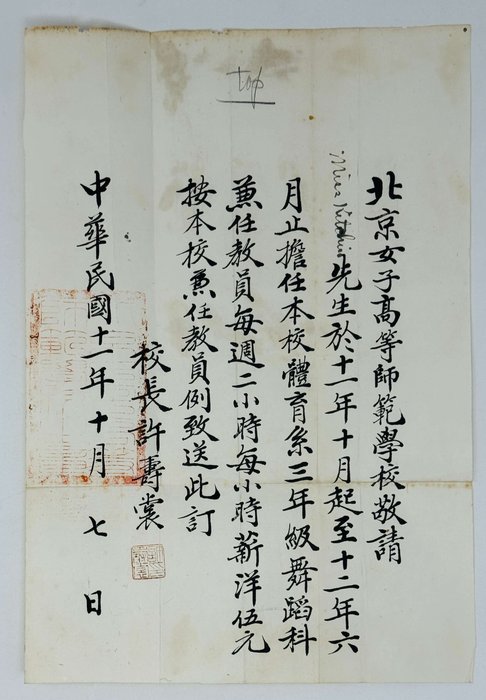 top
北京女子高等師範學校敬請
Miss 先生於十一年十月起至十二年六
月止擔任本校體育系三年級舞蹈科
兼任教員每週二小時每小時薪洋伍元
按本校兼任教員例致送此訂
校長許壽裳
中華民國十一年十月七日